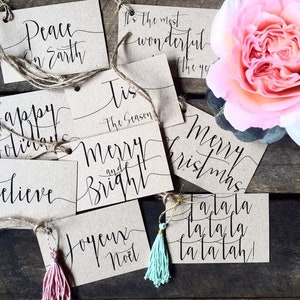 Peace
on Earth
It's the most
wonderful
the ye
Happy
Holidays
Tis
The Season
Merry
Christmas
Merry
and
Bright
elieve
Joyeux
Noel
Fa la la
la la
la la
la la lah!